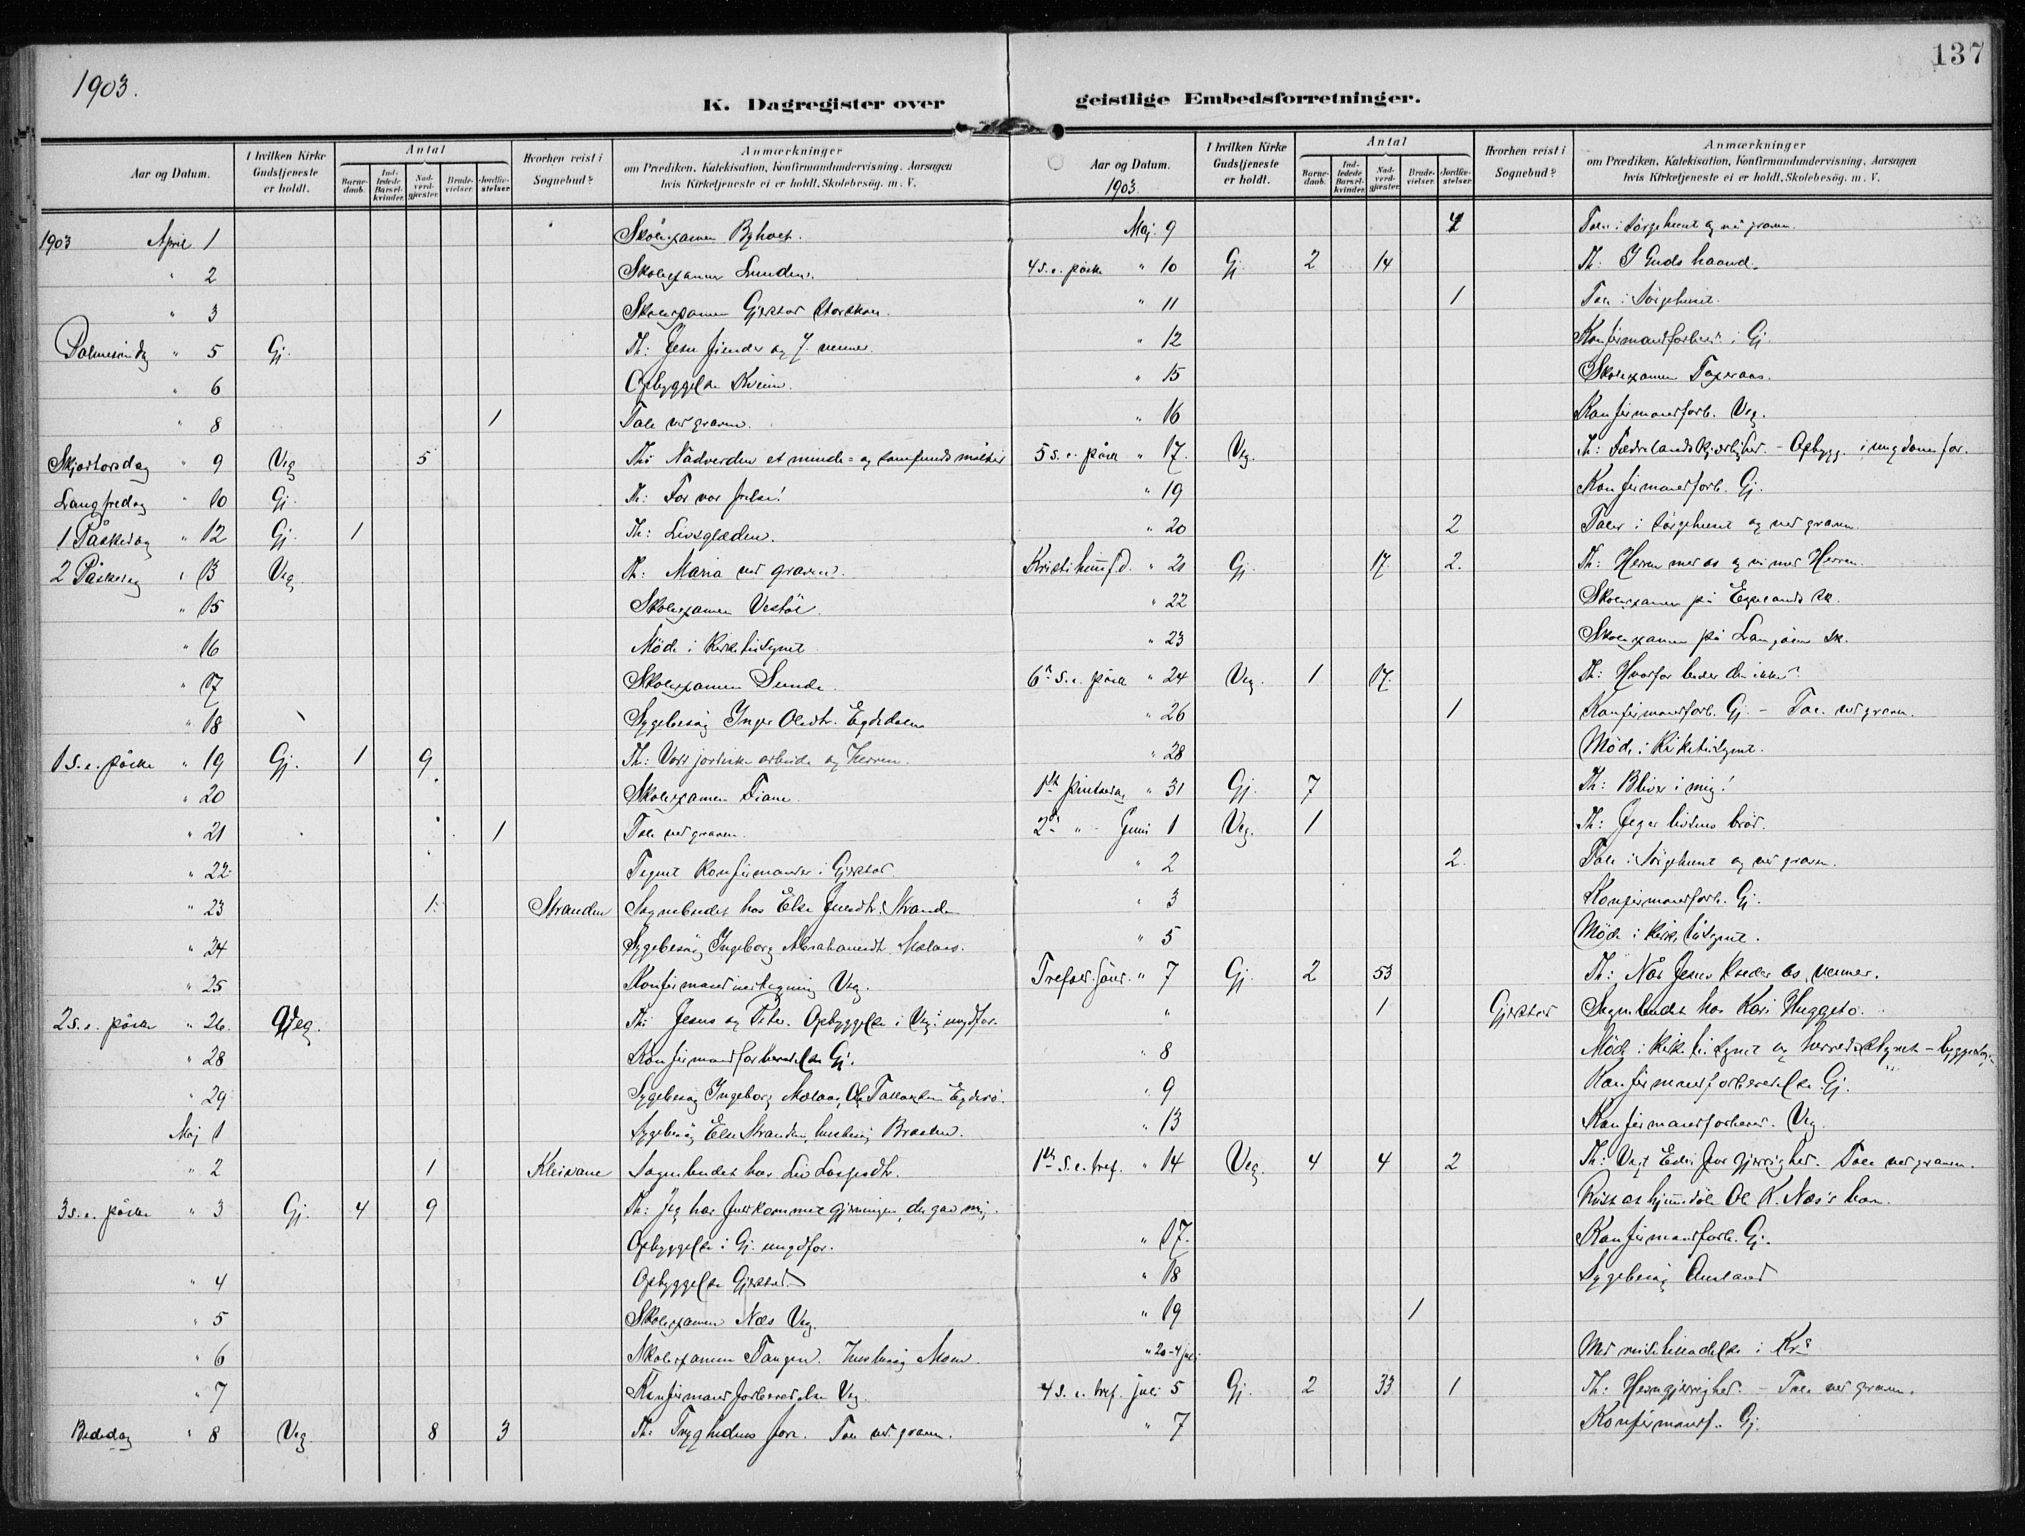 137
1903.
K. Dagregister over geistlige Embedsforretninger.
Aar og Datum. I hvilken Kirke Gudstjeneste er holdt. Antal Barnedaab. Indledede Barselkvinder. Nadverdgjæster. Brudevielser. Jordfæstelser. Hvorhen reist i Sognebud? Anmærkninger om Prædiken, Katekisation, Konfirmandundervisning, Aarsagen hvis Kirketjeneste ei er holdt, Skolebesøg. m. V.
1903 April 1 Skolexamen
" 2 Skolexamen Lunden.
" 3 Skolexamen Gjerstad Storskole
Palmesøndag " 5 Gj. Th: Jesu fiender og J. venner.
" 6 Opbyggelse Kveim.
" 8 1 Tale ved graven.
Skjærtorsdag " 9 Veg 5 Th: Nadverden et minde= og samfundsmåltid
Langfredag " 10 Gj Th: For vor frelse!
1 Påskedag " 12 Gj. 1 Th: Livsglæden.
2 Påskedag " 13 Veg. Th: Maria ved graven.
" 15 Skolexamen Vestøl.
" 16 Møde i Kirketilsynet
" 17 Skolexamen Sunde.
" 18 Sygebesøg Inger Olsdtr. Egdedalen
1 S. e. påske " 19 Gj. 1 9 Th: Vort jordiske arbeide og Herren.
" 20 Skolexamen Fiane.
" 21 1 Tale ved graven.
" 22 Tegnet Konfirmander i Gjerstad
" 23 1 Stranden Sognebudet hos Else Stranden
" 24 Sygebesøg Ingeborg Abrahamsdtr. Mølaas.
" 25 Konfirmandindtegning Veg.
2 S. e. påske " 26 Veg. Th: Jesus og Peter. Opbyggelse i Veg. ungdfor.
" 28 Konfirmandforberedelse Gj.
" 29 Sygebesøg Ingeborg Mølaas,
Maj 1 Sygebesøg Else Stranden, husbesøg Braaten.
" 2 1 Kleivane Sognebudet hos Liv
3 S. e. påske " 3 Gj. 4 9 Th: Jeg har fuldkommet gjerningen, du gav mig.
Opbyggelse i Gj. ungdfor.
" 4 Opbyggelse Gjerstad
" 5 Skolexamen Næs Veg.
" 6 Skolexamen Tangen. Husbesøg Moen.
" 7 Konfirmandforberedelse Veg.
Bededag " 8 Veg 8 3 Th: Tryghedens fare. Tale ved graven.
Aar og Datum. I hvilken Kirke Gudstjeneste er holdt. Antal Barnedaab. Indledede Barselkvinder. Nadverdgjæster. Brudevielser. Jordfæstelser. Hvorhen reist i Sognebud? Anmærkninger om Prædiken, Katekisation, Konfirmandundervisning, Aarsagen hvis Kirketjeneste ei er holdt, Skolebesøg. m. V.
1903
Maj. 9 Tale i Sørgehuset og ved graven.
4 S. e. påske " 10 Gj. 2 14 Th: I Guds haand.
" 11 1 Tale i Sørgehuset.
" 12 Konfirmandforbered. i Gj.
" 15 Skolexamen Taxeraas.
" 16 Konfirmandforb. Veg.
5 S. e. påske " 17. Veg. Th: Fædrelandskjærlighed. - Opbygg. i ungdomsfor.
" 19 Konfirmandforb. Gj.
" 20 2 Taler i Sørgehuset og ved graven
Kristi himfd. " 21 Gj 17 2. Th: Herren med os og vi med Herren.
" 22 Skolexamen på Eskelands Sk.
" 23 Skolexamen på sk.
6te S. e. påske " 24 Veg. 1 17. Th: Hvorfor leder du ikke?
" 26 1 Konfirmandforb. Gj. - Tale ved graven.
" 28 Møde i Kirketilsynet.
1ste pintsedag " 31 Gj. 7 Th: Bliver i mig!
2den " - Juni 1 Veg. 1 Th: Jeg er livsens brød.
" 2 2. Tale i Sørgehuset og ved graven.
" 3 Konfirmandforb. Gj.
" 5 Møde i Kirketilsynet.
Trefold. sønd. " 7 Gj. 2 53 Th: Når Jesus kalder os venner.
" 1 Gjerstad Sognebudet hos Kari Heggetø.
" 8 Møde i Kirketilsynet og herredsstyret -
" 9 Konfirmandforberedelse. Gj.
" 13 Konfirmandforbered. Veg.
1ste S. e. tref. " 14 Veg. 4 4 2 Th: Vogt Eder for gjerrighed. Tale ved graven.
K. Næs's
" 17. Konfirmandforb. Gj.
" 18 Sygebesøg Ausland
" 19 1
" 20-4 juli
4 S. e. tref. juli 5 Gj. 2 33 1 Th: Hevngjerrighed. - Tale ved graven.
" 7 Konfirmandf. Gj.